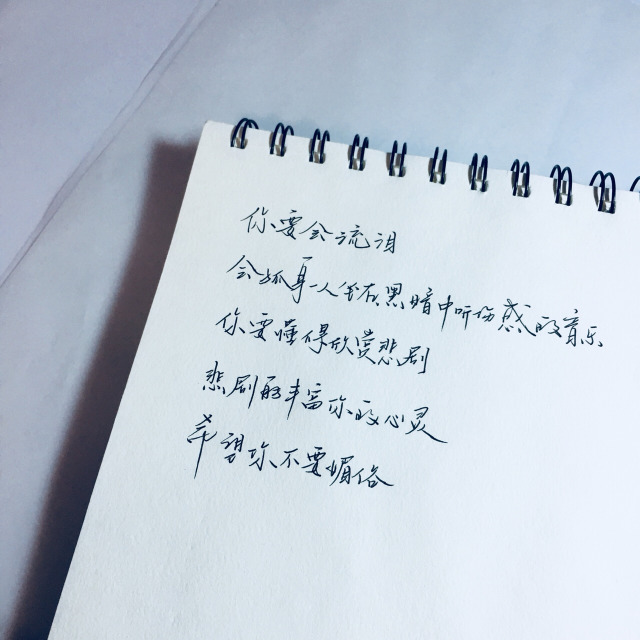 你要会流泪
会孤身一人坐在黑暗中听伤感的音乐
你要懂得欣赏悲剧
悲剧能丰富你的心灵
希望你不要媚俗